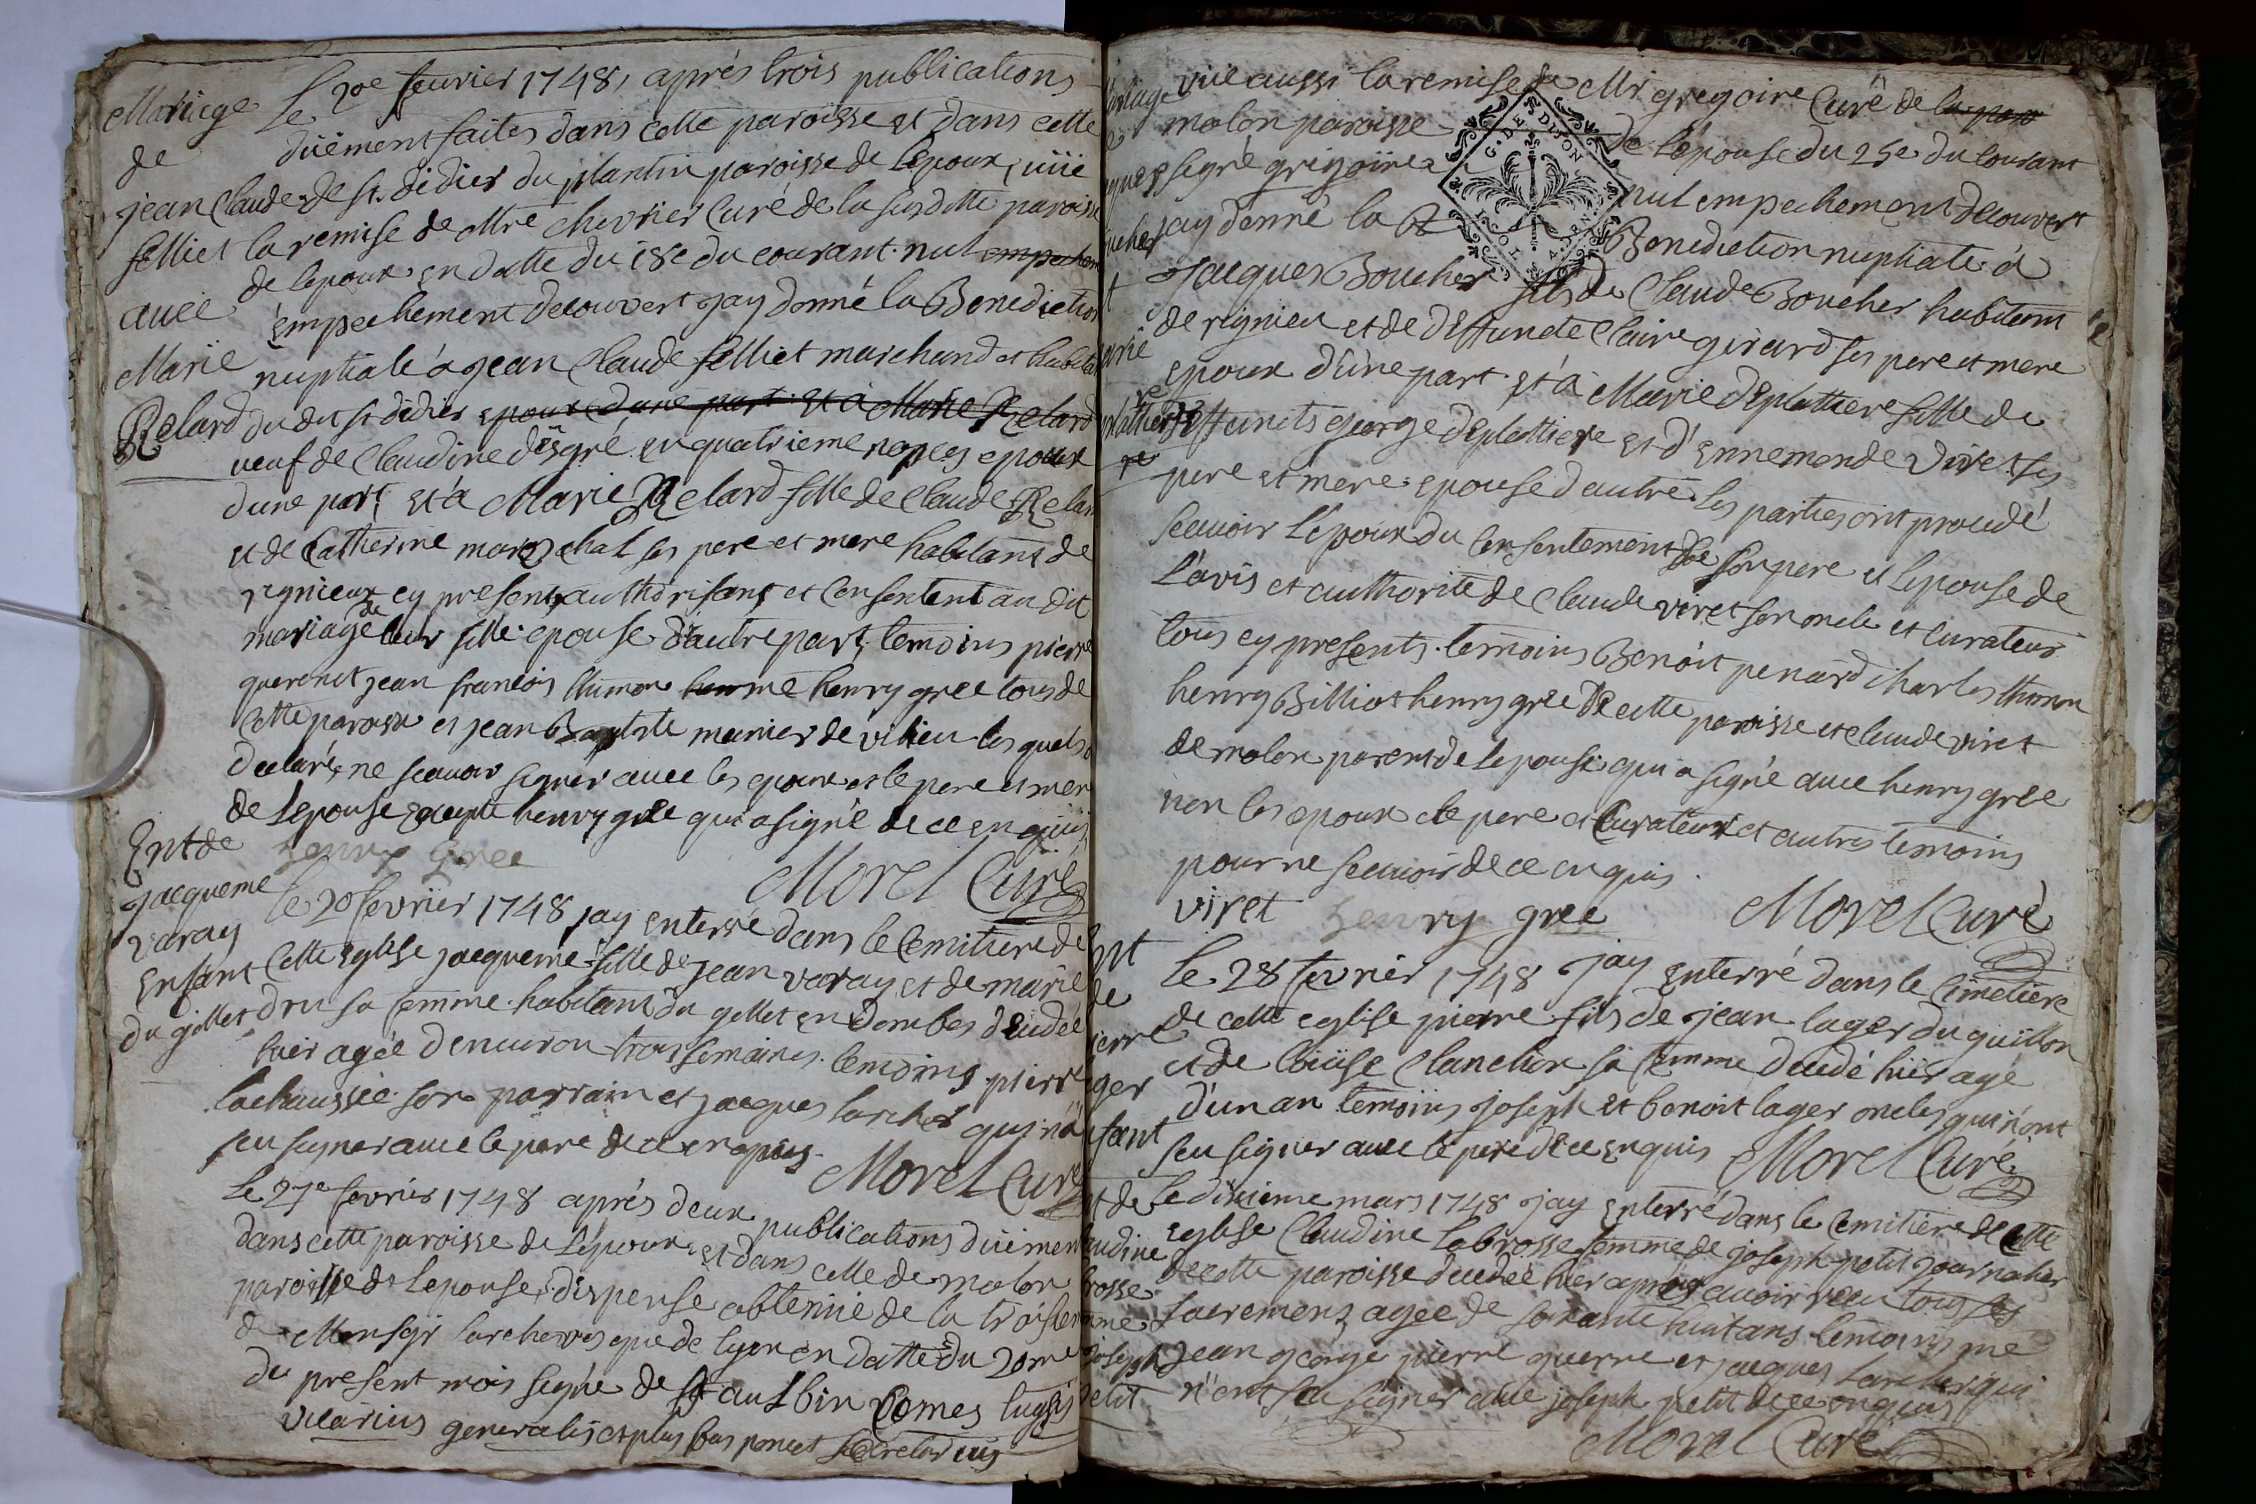 Mariage
de
jean Claude
felliet
avec
Marie
Relard
Le 20e fevrier 1748, après trois publications
düement faites dans cette paroisse et dans celle
de st. didier du plantin paroisse de l'epoux, vüe
la remise de Mre chevrier Curé de la susditte paroisse
de lepoux en datte du 18e du courant. nul empechem
émpechement decouvert jay donné la Benediction
nuptiale á jean Claude felliet marchand et habitan
du dit st didier epoux d'une part et á Marie Relard
veuf de Claudine dësgré en quatrieme nopces epoux
dune part et á Marie Relard fille de Claude Relar
et de Catherine marechal ses pere et mere habitans de
rignieux cy presents authorisans et Consentent au dit
mariage de leur fille epouse d'autre part, temoins pierre
querenet jean francois thimon henry gree tous de
cette paroisse et jean Baptiste munier de vilieu les quels
declaré, ne scavoir signer avec les epoux et le pere et mere
de Lepouse excepté henry gree qui a signé de ce enquis
henry gree
Morel Curé
Ent de
jacqueme
varay
enfant
du gillet
le 20 fevrier 1748 jay enterré dans le Cemitiere de
Cette eglise jacqueme fille de jean varay et de marie
dru sa femme habitans du gillet en dombes decedée
hier agée denviron trois semaines. temoins pierre
lachaussée son parrain et jacques larcher qui n'a
seu signer avec le pere de ce enquis.
Morel Curé
Le 27e fevrier 1748 après deux publications düement
dans cette paroisse de L'époux et dans celle de molon
paroisse de lepouse, dispense obtenüe de la troisiem
de Monsgr larcheves que de lyon en datte du 20me
du present mois signé de st aulbin Comes lugs
vicarius generalis et plus bas poncet secretarius
vüe aussi la remise de Mr gregoire Curé de la paro
molon paroisse de l'épouse du 25e du courant
signé grégoire nul empechement decouvert
jay donné la B Benediction nuptiale á
Jacques Boucher fils de Claude Boucher habitant
de rignieu et de deffuncte Claire girard ses pere et mere
epoux d'üne part et á Marie deplattiere fille de
deffuncts george deplattiere et d'Ennemonde viret ses
pere et mere epouse d'autre. les parties ont procedé
scavoir l'époux du Consentement de son pere et lepouse de
l'avis et authorité de Claude viret son oncle et curateur
tous cy presents. temoins Benoit penard charles thimon
henry Billiot henry gree de cette paroisse et claude viret
de molon parent de lepouse qui a signé avec henry gree
non les epoux le pere et Curateur et autres temoins
pour ne scavoir de ce enquis.
viret henry gree Morel Curé
Ent
de
pierre
lager
enfant
Le 28 fevrier 1748 jay enterré dans le cimetiere
de cette eglise pierre fils de jean lager du guillon
et de loüise Clanchon sa femme decedé hïer agé
d'un an temoins joseph et benoit lager oncles qui n'ont
seu signer avec le pere de ce enquis Morel Curé
Ent de
claudine
labrosse
femme
joseph
petit
Le dixieme mars 1748 jay enterré dans le Cemitiere de cette
eglise Claudine labrosse femme de joseph petit journalier
de cette paroisse decedée hier après avoir receu tous ses
sacremens agée de soixante huit ans temoins
jean george pierre guerre et jacques larcher qui
n'ont seu signer avec joseph petit de ce enquis
Morel Curé
G. DE DIJON